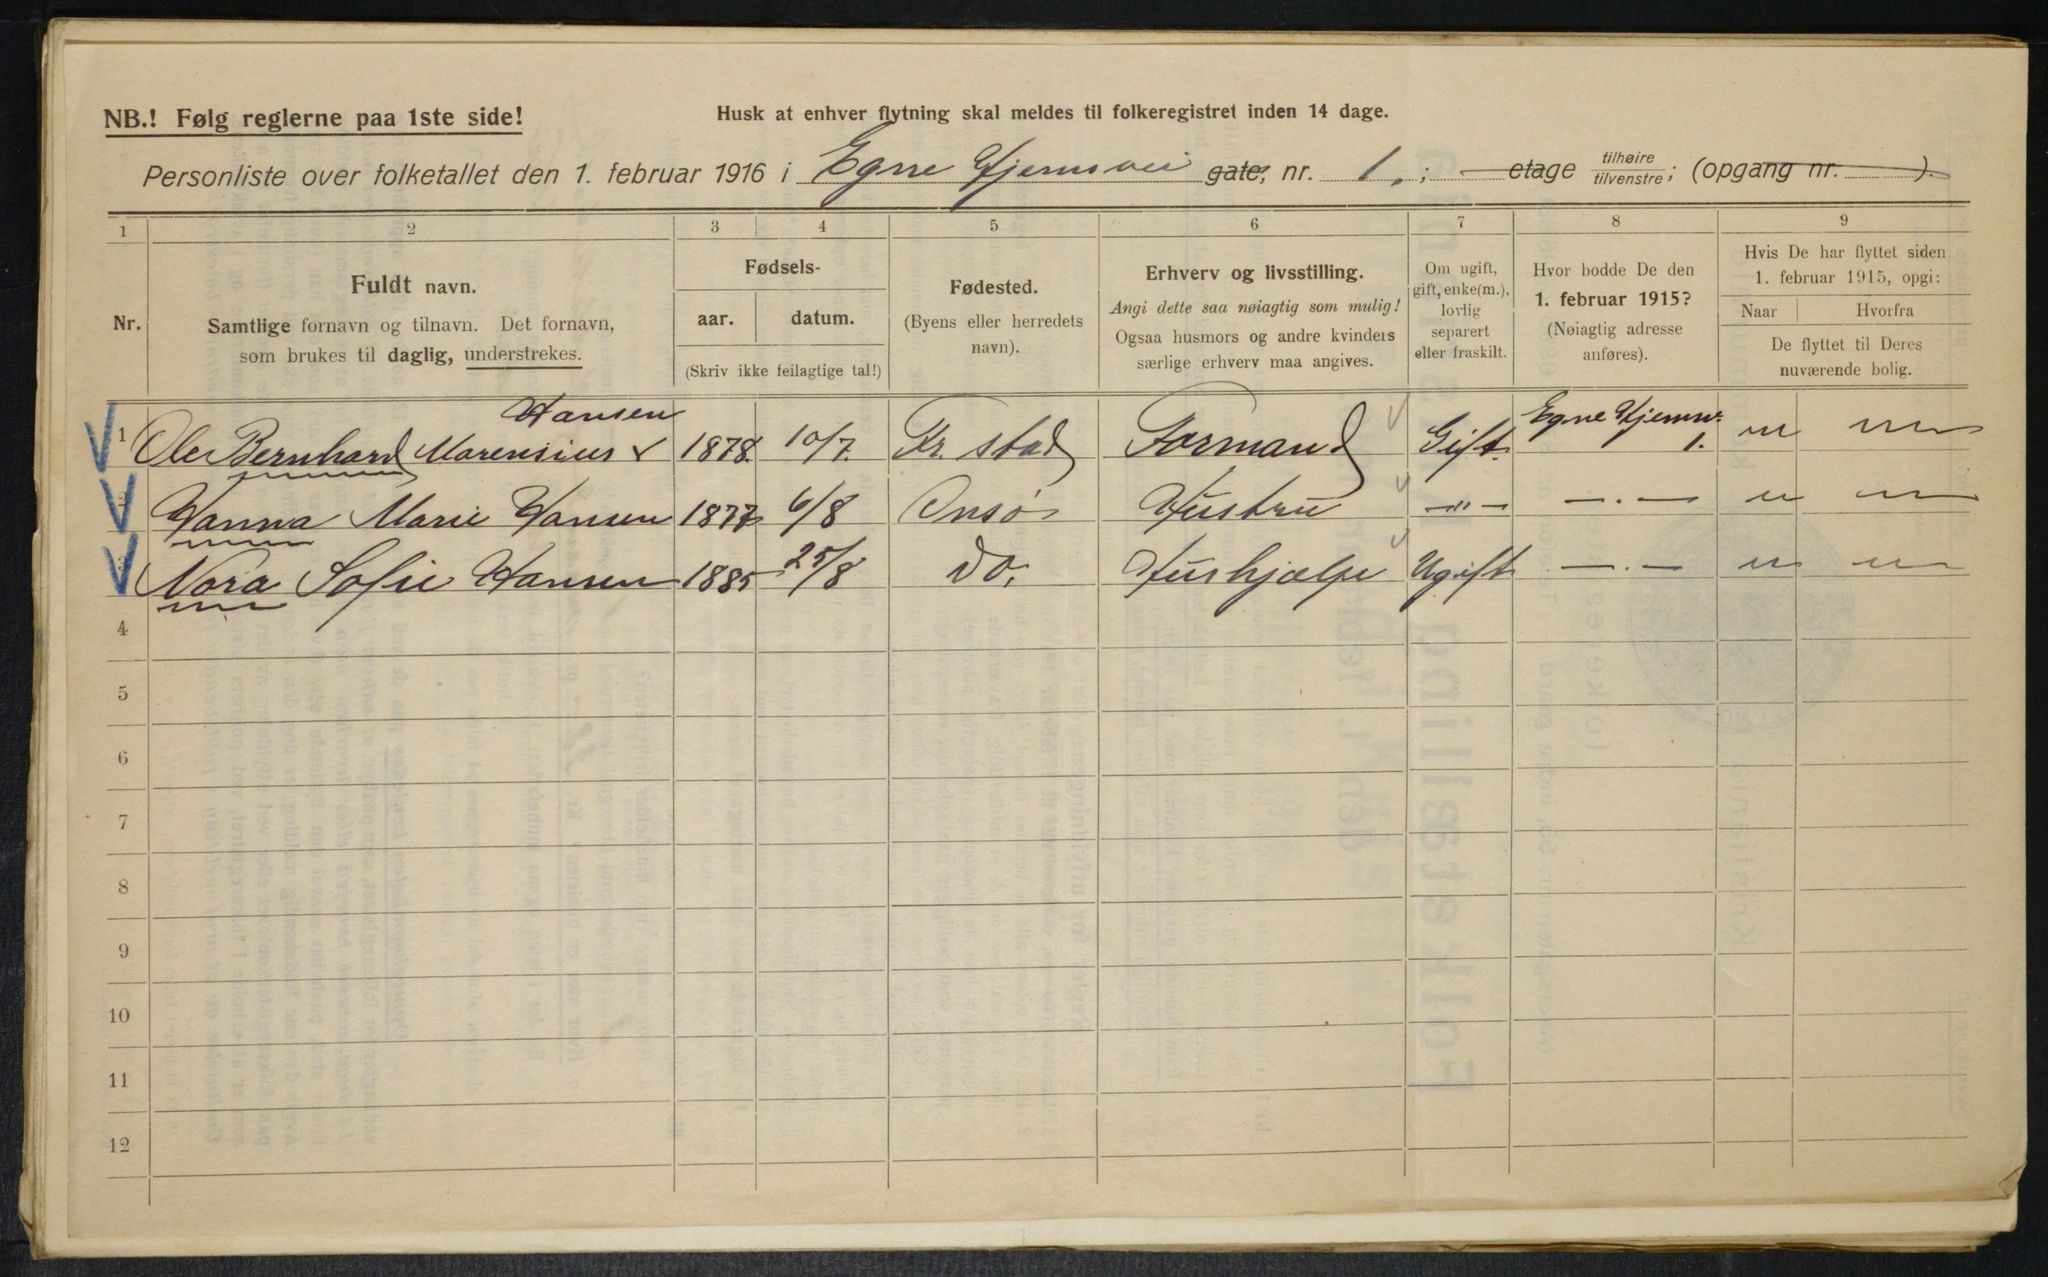 NB.! Følg reglerne paa 1ste side!
Husk at enhver flytning skal meldes til folkeregistret inden 14 dage.
Personliste over folketallet den 1. februar 1916 i Egne Hjemsvei gate, nr. 1. ; etage tilhøire tilvenstre; (opgang nr. ).
1 2 3 4 5 6 7 8 9
Nr.
Fuldt navn.
Samtlige fornavn og tilnavn. Det fornavn,
som brukes til daglig, understrekes.
Fødsels-
aar. datum.
(Skriv ikke feilagtige tal!)
Fødested.
(Byens eller herredets
navn).
Erhverv og livsstilling.
Angi dette saa nøiagtig som mulig!
Ogsaa husmors og andre kvinders
særlige erhverv maa angives.
Om ugift,
gift, enke(m.),
lovlig
separert
eller fraskilt.
Hvor bodde De den
1. februar 1915?
(Nøiagtig adresse
anføres).
Hvis De har flyttet siden
1. februar 1915, opgi:
Naar Hvorfra
De flyttet til Deres
nuværende bolig.
Hansen
1 Ole Bernhard Marensius 1878. 10/7. Kr. stad Formand Gift. Egne Hjemsv. 1. " "
2 Hanna Marie Hansen 1877 6/8 Onsø Hustru —"— —.— " "
3 Nora Sofie Hansen 1885 25/8 do. Hushjælp Ugift —.— " "
4
5
6
7
8
9
10
11
12